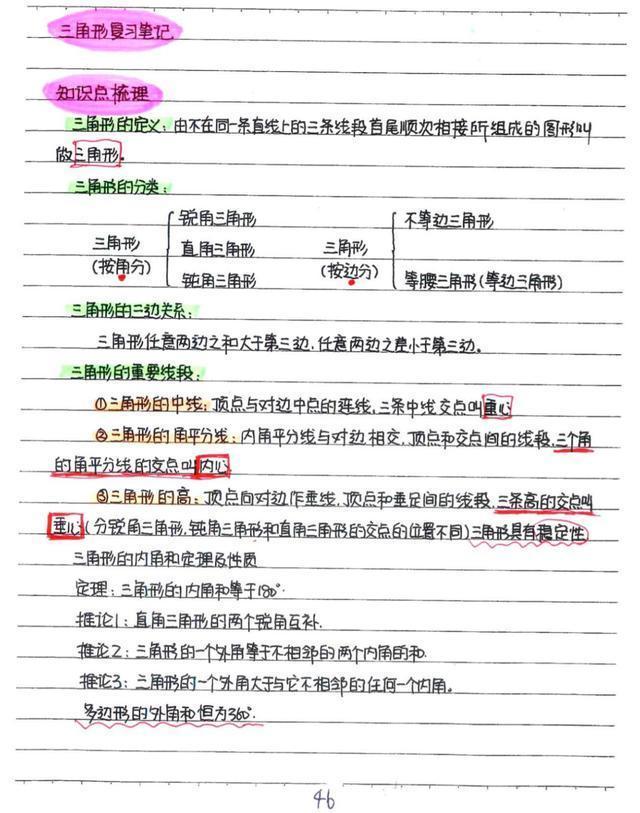 三角形复习笔记
知识点梳理
三角形的定义：由不在同一条直线上的三条线段首尾顺次相接所组成的图形叫
做三角形。
三角形的分类：
锐角三角形 不等边三角形
三角形 直角三角形 三角形
(按角分) (按边分)
钝角三角形 等腰三角形(等边三角形)
三角形的三边关系：
三角形任意两边之和大于第三边，任意两边之差小于第三边。
三角形的重要线段：
①三角形的中线：顶点与对边中点的连线，三条中线交点叫重心
②三角形的角平分线：内角平分线与对边相交，顶点和交点间的线段，三个角
的角平分线的交点叫内心
③三角形的高：顶点向对边作垂线，顶点和垂足间的线段，三条高的交点叫
垂心(分锐角三角形，钝角三角形和直角三角形的交点的位置不同)三角形具有稳定性
三角形的内角和定理及性质
定理：三角形的内角和等于180°.
推论1：直角三角形的两个锐角互补.
推论2：三角形的一个外角等于不相邻的两个内角的和.
推论3：三角形的一个外角大于与它不相邻的任何一个内角。
多边形的外角和恒为360°.
46